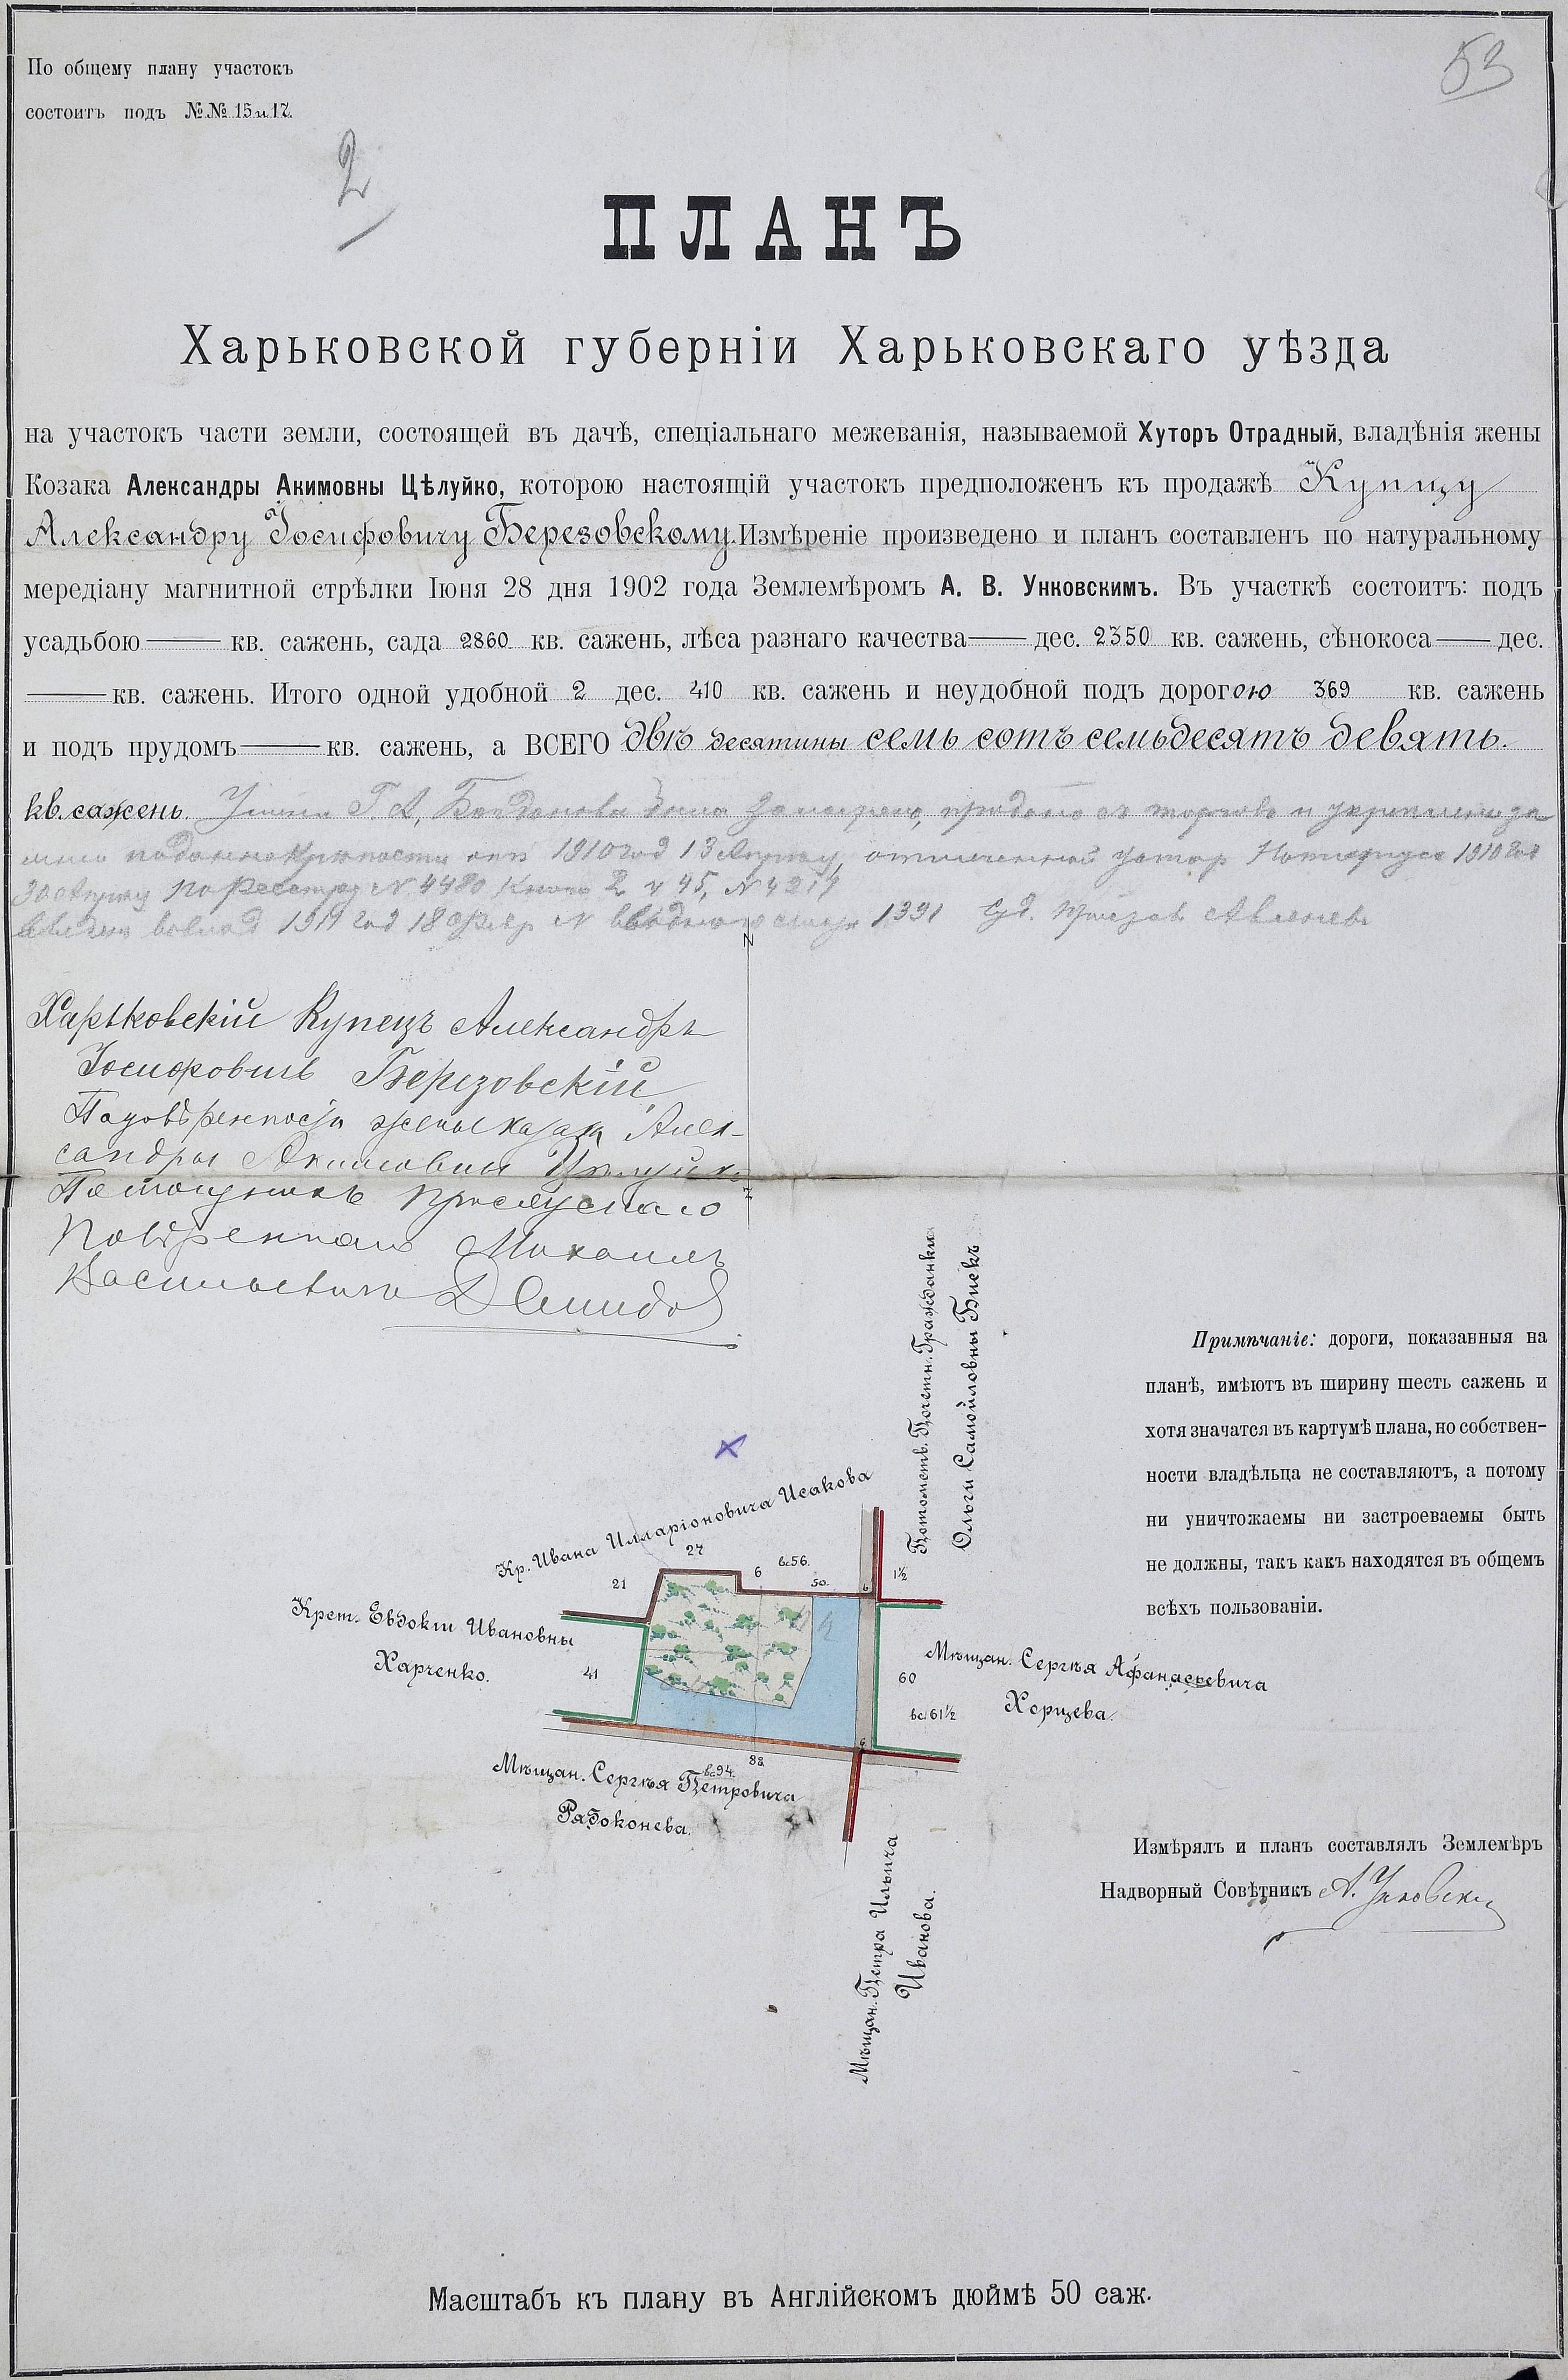 По общему плану участокъ
состоитъ подъ №№ 15 и 17.
53
2
ПЛАНЪ
Харьковской губерніи Харьковскаго уѣзда
на участокъ части земли, состоящей въ дачѣ, спеціальнаго межеванія, называемой Хуторъ Отрадный, владѣнія жены
Козака Александры Акимовны Цѣлуйко, которою настоящій участокъ предположенъ къ продажѣ Купцу
Александру Іосифовичу Березовскому. Измѣреніе произведено и планъ составленъ по натуральному
мередіану магнитной стрѣлки Іюня 28 дня 1902 года Землемѣромъ А. В. Унковскимъ. Въ участкѣ состоитъ: подъ
усадьбою —— кв. сажень, сада 2860 кв. сажень, лѣса разнаго качества —— дес. 2350 кв. сажень, сѣнокоса —— дес.
—— кв. сажень. Итого одной удобной 2 дес. 410 кв. сажень и неудобной подъ дорогою 369 кв. сажень
и подъ прудомъ —— кв. сажень, а ВСЕГО двѣ десятины семь сотъ семьдесятъ девять.
кв. сажень. Г. А. Богданова продано съ торговъ и
1910 год 13 1910 год
30 Апрѣля по Реестру № 4480 Книга 2 ч 45, № 4214
1911 год 18 февр № 1391
N
Харьковскій Купецъ Александръ
Іосифовичъ Березовскій
По довѣренности жены казака Алек-
сандры Акимовны Цѣлуйко
Помощникъ присяжнаго
повѣреннаго Михаилъ
Васильевичъ Демидов
Z
Потомств. Почетн. Гражданки
Ольги Самойловны Биекъ
Примѣчаніе: дороги, показанныя на
планѣ, имѣютъ въ ширину шесть сажень и
хотя значатся въ картумѣ плана, но собствен-
ности владѣльца не составляютъ, а потому
ни уничтожаемы ни застроеваемы быть
не должны, такъ какъ находятся въ общемъ
всѣхъ пользованіи.
Кр. Ивана Илларіоновича Исакова
27
21
6
вс 56.
50.
6
1½
Крест. Евдокіи Ивановны
Харченко.
41
Мѣщан. Сергѣя Афанасьевича
Хорцева.
60
вс 61½
6
88
вс 94.
Мѣщан. Сергѣя Петровича
Рядоконева.
Мѣщан. Петра Ильича
Иванова.
Измѣрялъ и планъ составлялъ Землемѣръ
Надворный Совѣтникъ А. Унковскій
Масштабъ къ плану въ Англійскомъ дюймѣ 50 саж.